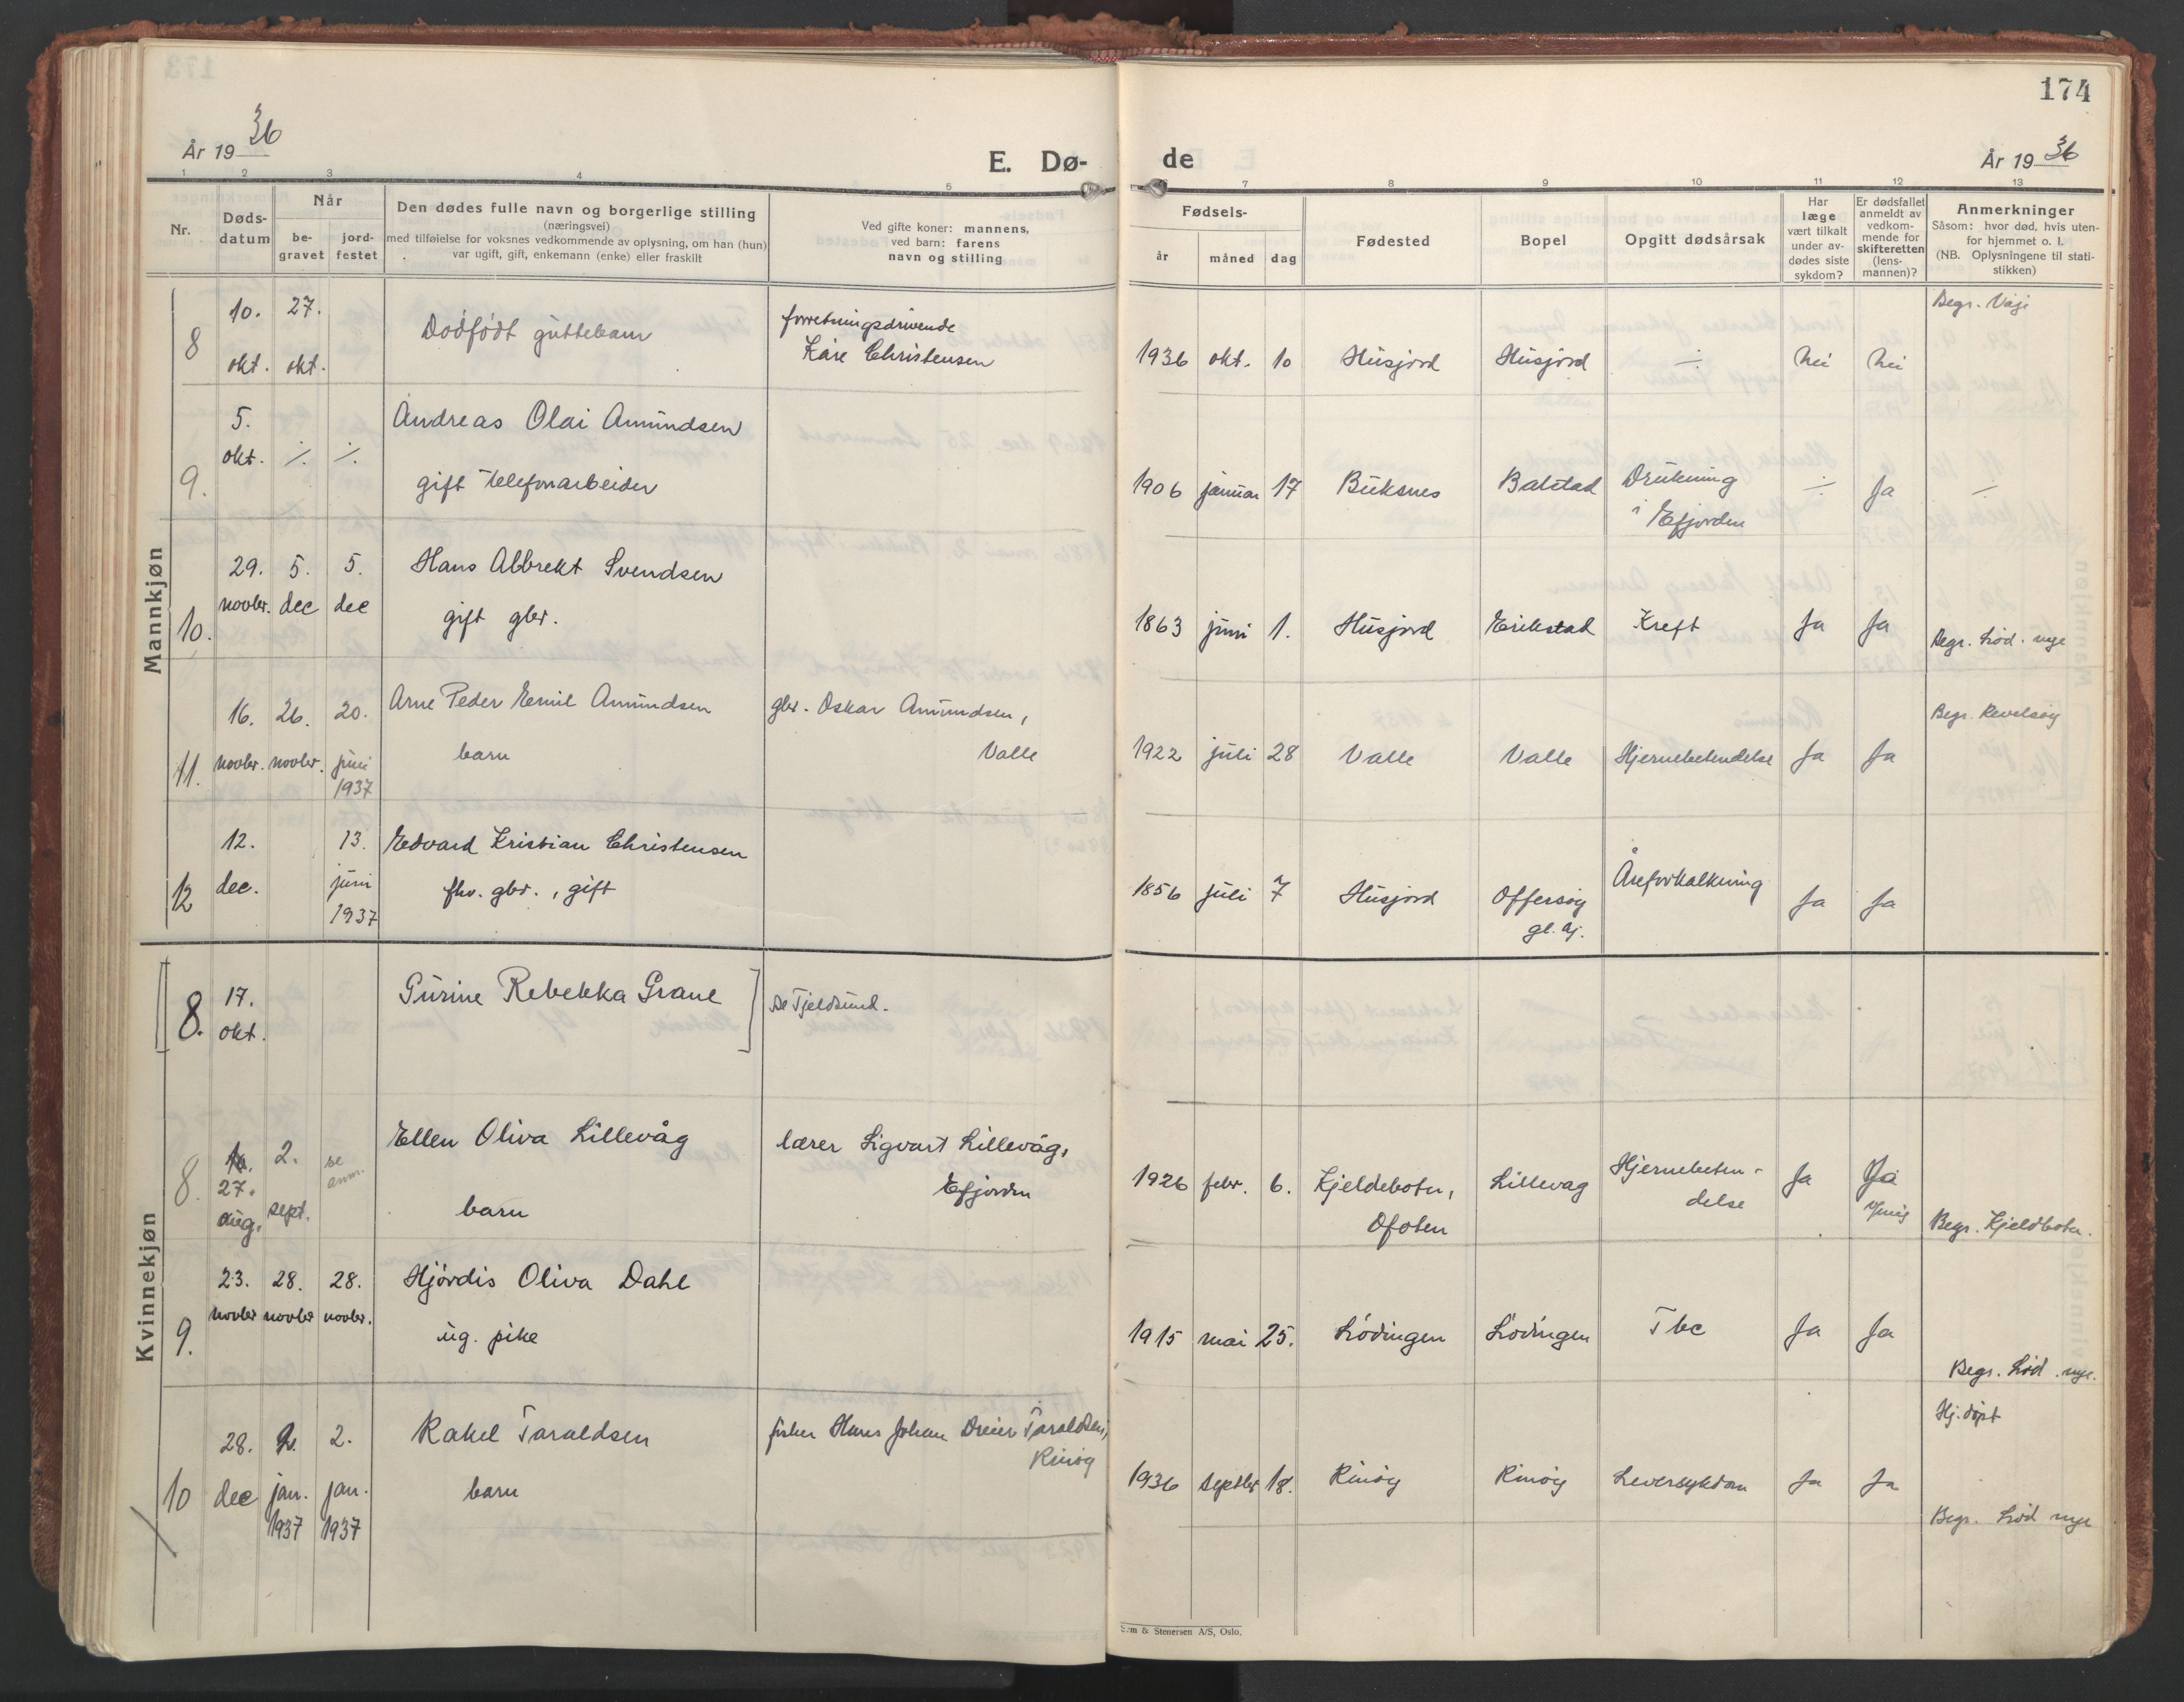 174
År 1936
E. Dø-
de
År 1936
1 2 3 4 5 6 7 8 9 10 11 12 13
Nr.
Døds-
datum
Når
be-
gravet
jord-
festet
Den dødes fulle navn og borgerlige stilling
(næringsvei)
med tilføielse for voksnes vedkommende av oplysning, om han (hun)
var ugift, gift, enkemann (enke) eller fraskilt
Ved gifte koner: mannens,
ved barn: farens
navn og stilling
Fødsels-
år
måned
dag
Fødested
Bopel
Opgitt dødsårsak
Har
læge
vært tilkalt
under av-
dødes siste
sykdom?
Er dødsfallet
anmeldt av
vedkom-
mende for
skifteretten
(lens-
mannen)?
Anmerkninger
Såsom: hvor død, hvis uten-
for hjemmet o. l.
(NB. Oplysningene til stati-
stikken)
Mannkjøn
8
10.
okt.
27.
okt.
Dødfødt guttebarn
forretningsdrivende
Kåre Christensen
1936 okt. 10 Husjord Husjord ÷ Nei Nei
Begr. Våje
9.
5.
okt. ⁒ ⁒
Andreas Olai Amundsen
gift telefonarbeider
1906 januar 17 Buksnes Balstad
Drukning
i Efjorden
÷ Ja ÷
10.
29.
novbr.
5.
dec
5.
dec
Hans Albrekt Svendsen
gift gbr.
1863 juni 1. Husjord Erikstad Kreft Ja Ja
Begr. Lød. nye
11.
16.
novbr.
26.
novbr.
20.
juni
1937
Arne Peder Emil Amundsen
barn
gbr. Oskar Amundsen,
Valle
1922 juli 28 Valle Valle Hjernebetendelse Ja Ja
Begr. Revelsøy
12
12.
dec.
13.
juni
1937
Edvard Kristian Christensen
fhv. gbr., gift
1856 juli 7 Husjord
Offersøy
gl. hj.
Åreforkalkning
Ja Ja
Kvinnekjøn
8.
17.
okt.
Gurine Rebekka Grane
se Tjeldsund.
8.
27.
aug.
2.
sept.
se
anm.
Ellen Oliva Lillevåg
barn
lærer Sigvart Lillevåg,
Efjorden
1926 febr. 6.
Kjeldebotn,
Ofoten
Lillevåg
Hjernebeten-
delse
Ja Ja
Begr. Kjeldbotn.
9.
23.
novbr
28.
novbr
28.
novbr.
Hjørdis Oliva Dahl
ug. pike
1915 mai 25. Lødingen Lødingen Tbc Ja Ja
Begr. Lød. nye.
10
28.
dec
2.
jan.
1937
2.
jan.
1937
Rakel Taraldsen
barn
fisker Hans Johan Dreier Taraldsen,
Rinøy
1936 septbr 18. Rinøy Rinøy Leversykdom Ja Ja
Hj. døpt
Begr. Lød nye
Sem & Stenersen A/S, Oslo.